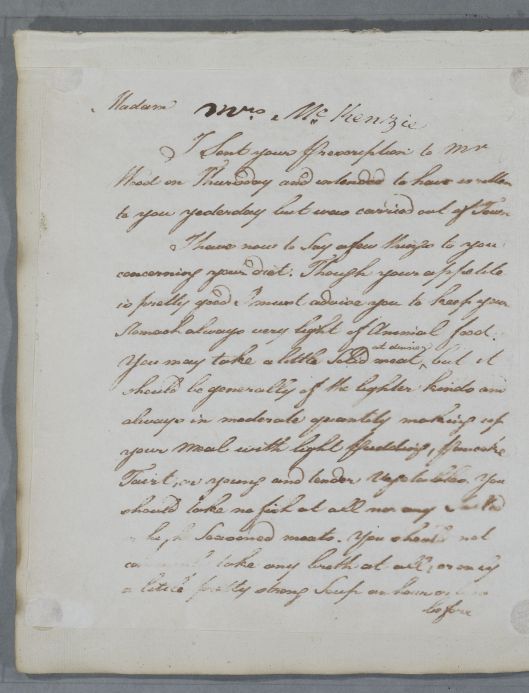 Madam Mrs. Mc.Kenzie
I Sent your Prescription to Mr
Wood on Thursday and intended to have written
to you yesterday but was carried out of Town
I have now to Say a few things to you
concerning your diet. Though your appetite
is pretty good I must advise you to keep your
Stomach always very light of Animal food.
at dinner
You may take a little Solid meat, but it
should be generally of the lighter kinds and
always in moderate quantity making up
your Meal with light Pudding, Pancake
Tart, or young and tender Vegetables. You
should take no fish at all nor any Salted
Seasoned meats. You should not
take any broth at all, or only
a little pretty strong Soup an hour or
before